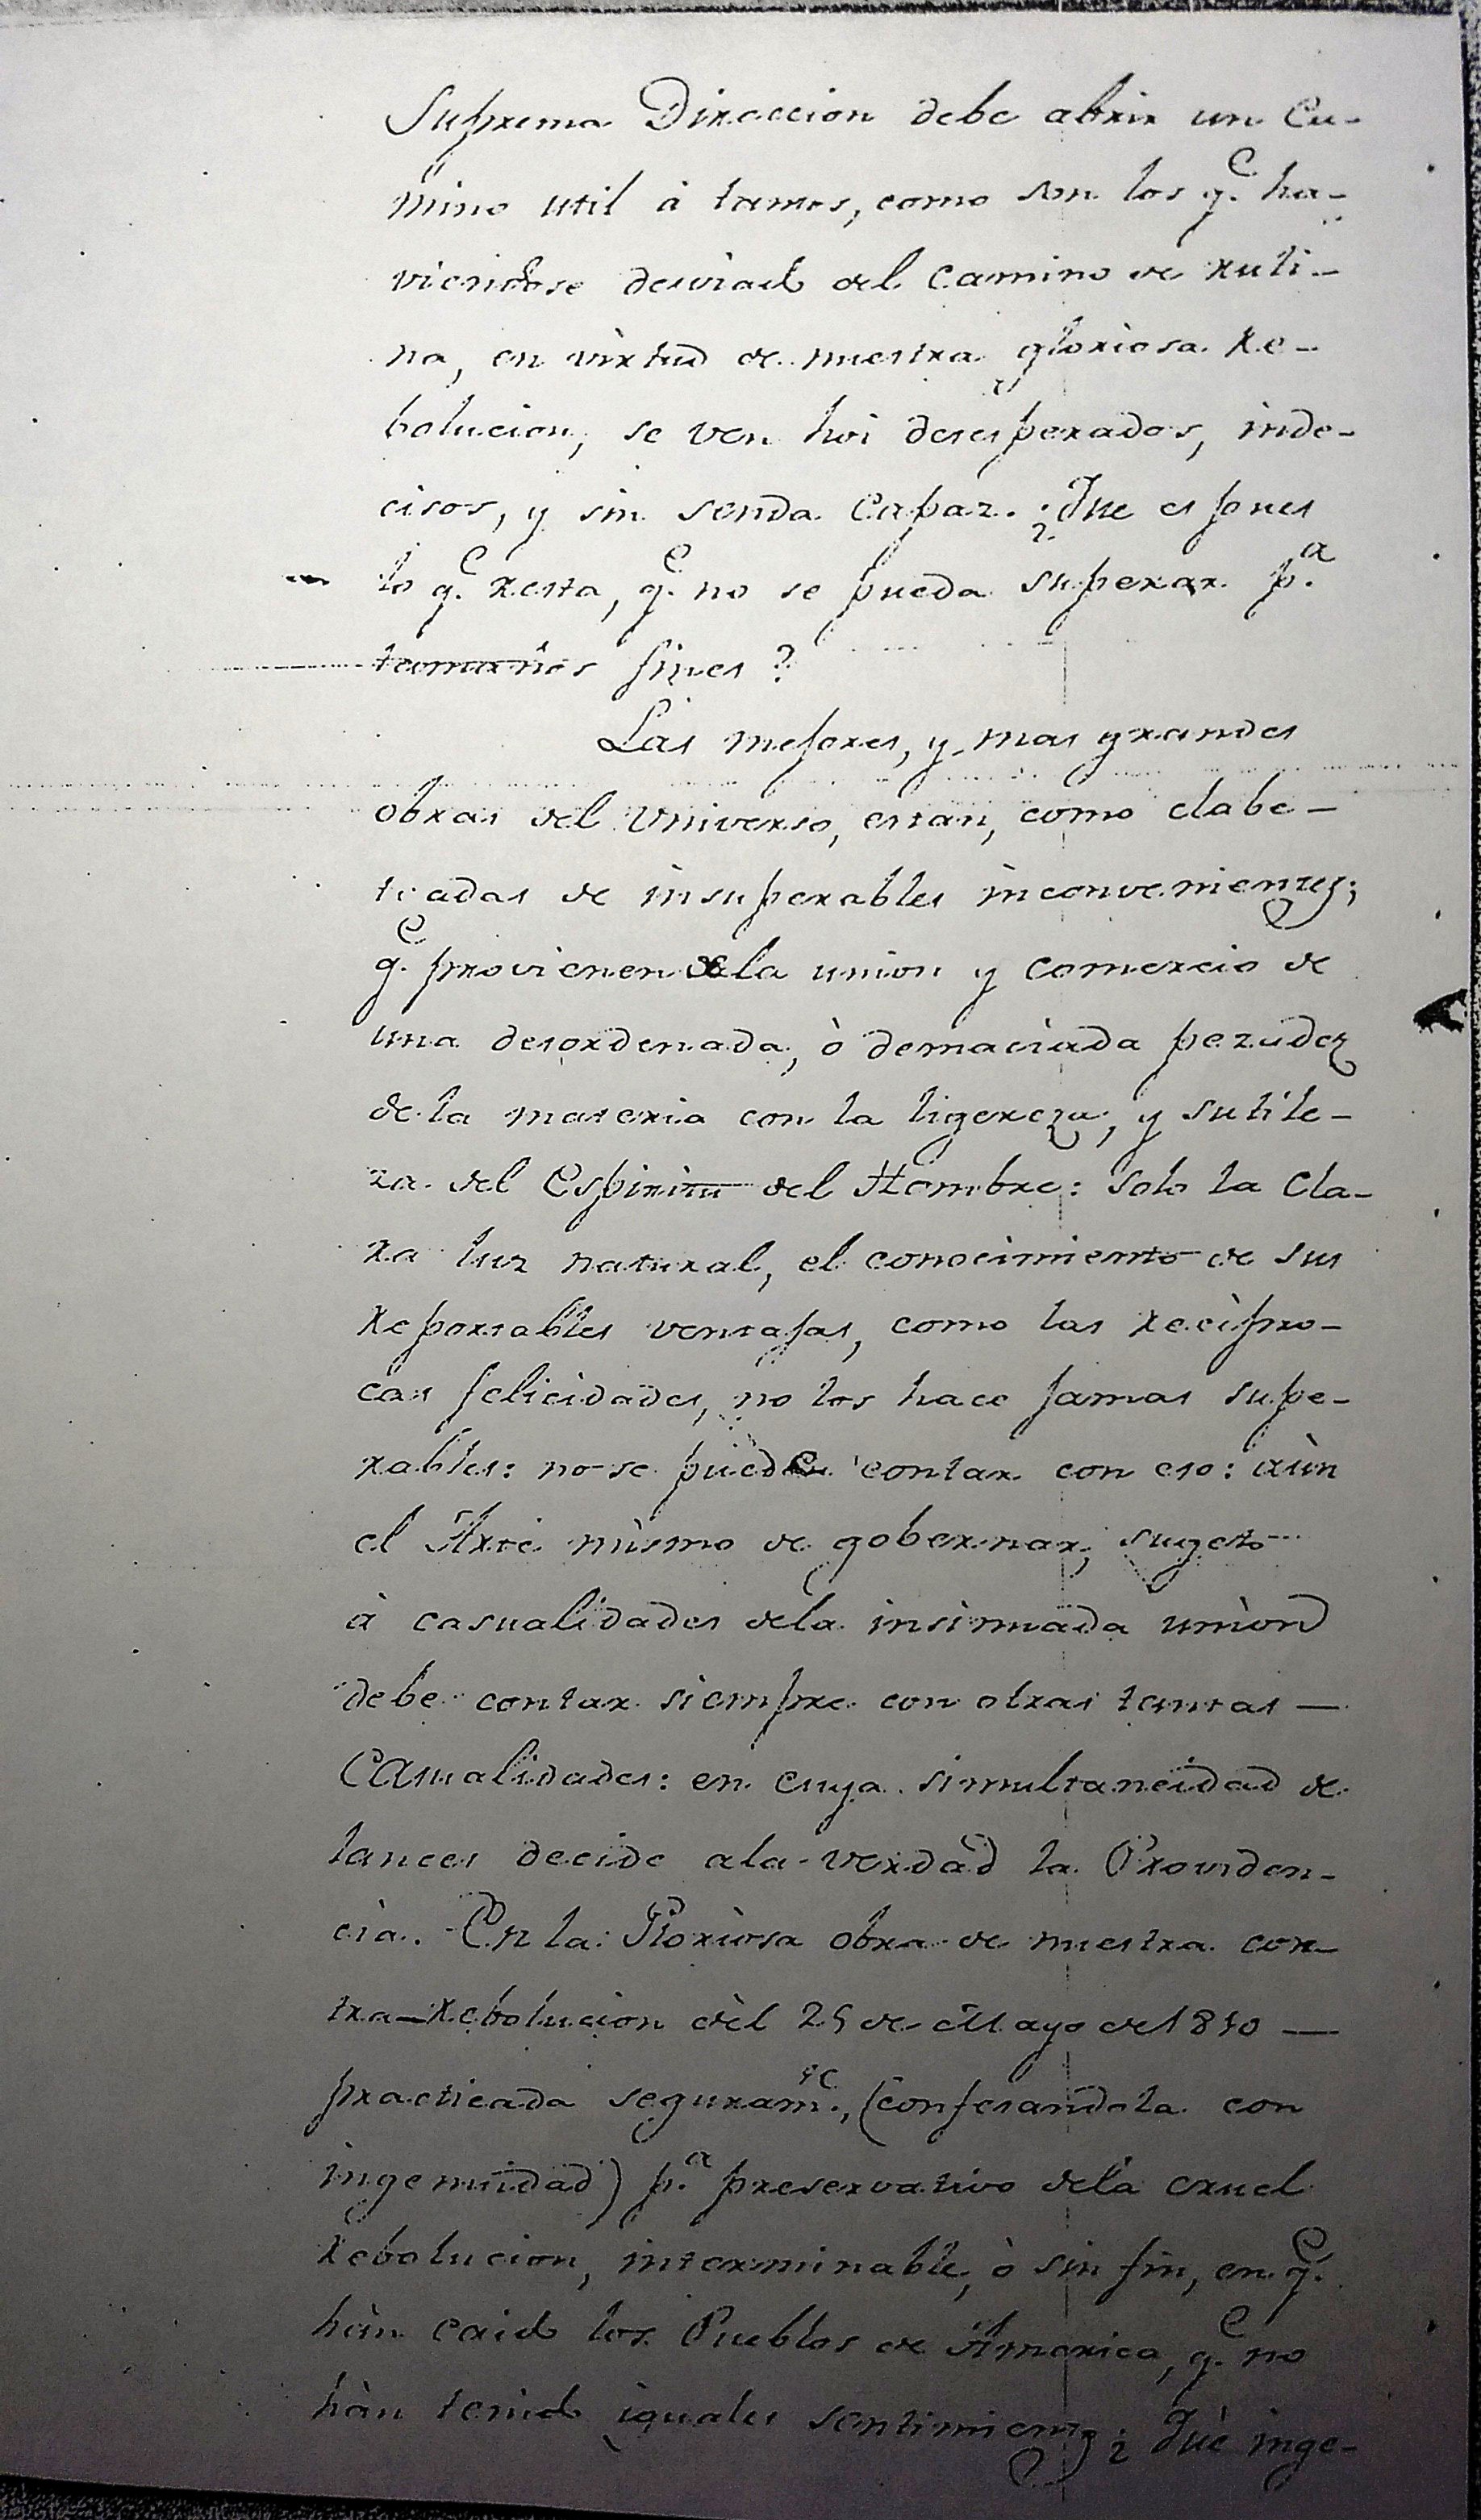 Suprema Direccion debe abrir un Ca-
mino util à tantos, como son los q.e ha-
viendose desviado del Camino de ruti-
na, en virtud de nuestra gloriosa Re-
bolucion, se ven hoi desesperados, inde-
cisos, y sin senda Capaz. ¿Que es pues
lo q.e resta, q.e no se pueda superar p.a
tamaños fines?
Las mejores, y mas grandes
obras del Universo, estan, como clabe-
teadas de insuperables inconvenientes;
q.e provienen de la union y comercio de
una desordenada, ò demaciada pezadez
de la materia con la ligereza, y sutile-
za del Espiritu del Hombre: solo la Cla-
ra luz natural, el conocimiento de sus
reportables ventajas, como las recipro-
cas felicidades, no los hace jamas supe-
rables: no se puede contar con eso: aùn
el Arte mismo de gobernar, sugeto
à casualidades dela insinuada union
debe contar siempre con otras tantas
Casualidades: en cuya simultaneidad de
lances decide ala verdad la Providen-
cia. En la Gloriosa obra de nuestra con-
tra-Rebolucion del 25 de Mayo de 1810
practicada seguram.te, (confesandola con
ingenuidad) p.a preservativo dela cruel
rebolucion, interminable, ò sin fin, en q.e
hàn caido los Pueblos de America, q.e no
hàn tenido iguales sentimientos ¿Què inge-